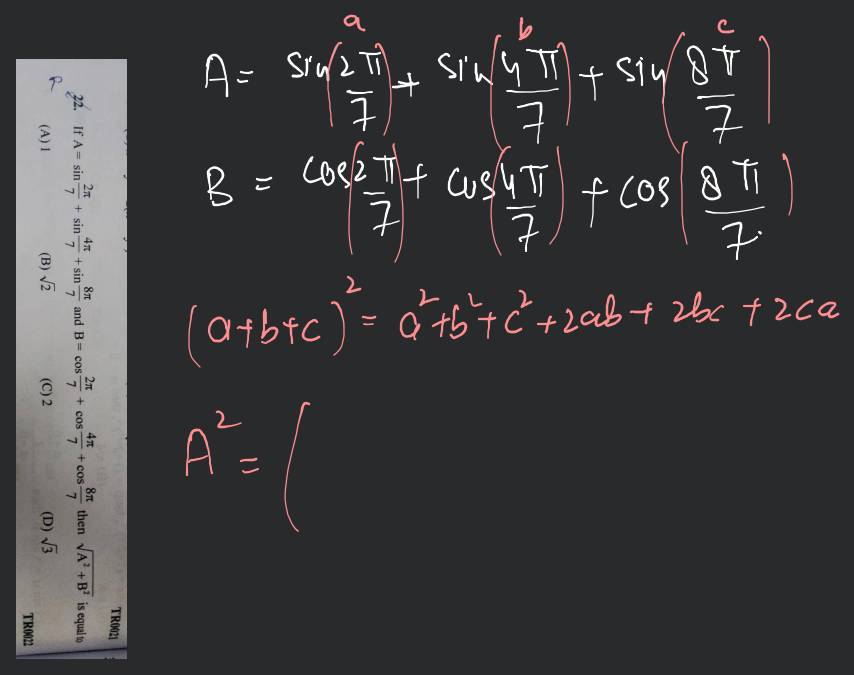 22. If A = sin 2π/7 + sin 4π/7 + sin 8π/7 and B = cos 2π/7 + cos 4π/7 + cos 8π/7 then √(A² + B²) is equal to
(A) 1 (B) √2 (C) 2 (D) √3
TR0021
TR0022
a b c
A = sin(2π/7) + sin(4π/7) + sin(8π/7)
B = cos(2π/7) + cos(4π/7) + cos(8π/7)
(a+b+c)² = a²+b²+c²+2ab+2bc+2ca
A² = (